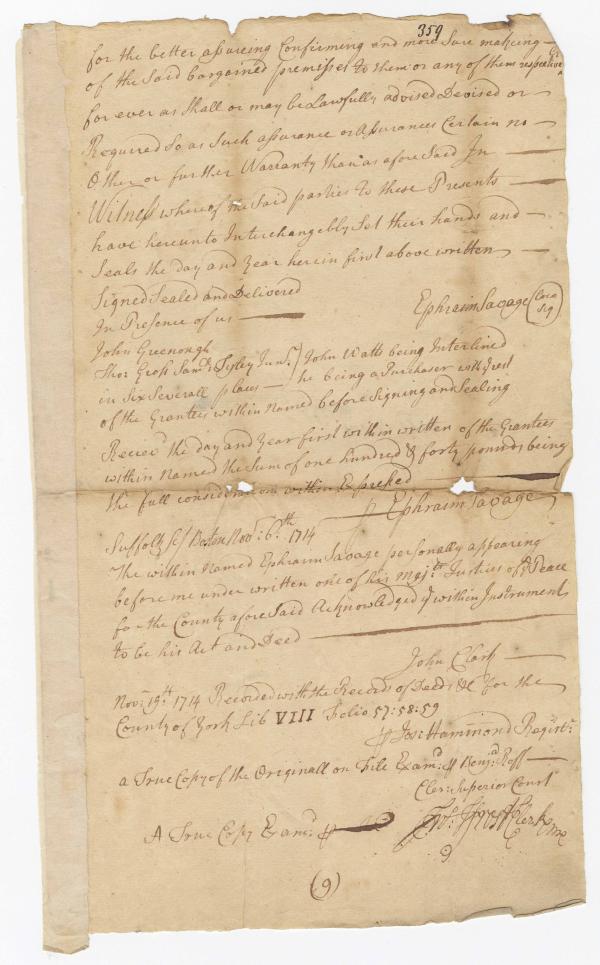 359
for the better assureing Confirming and more Sure making
of the Said bargained premisses to them or any of them respective
for ever as Shall or may be Lawfully advised Devised or
Required So as Such assurance or Assurances Certain no
Other or further Warranty than as afore Said In
Witness whereof the Said parties to these Presents
have hereunto Interchangebly Set their hands and
Seals the day and Year herein first above written
Signed Sealed and Delivered
In Presence of us
Ephraim Savage (Loco Sig)
John Greenough
Thos Gross Sam.ll Tyley Jun.r) John Watts being Interlined
in Six Severall places — he being a Purchaser with ye rest
of the Grantees within Named before Signing and Sealing
Receiv.d the day and Year first within written of the Grantees
within Named the Sum of one hundred & forty pounds being
the full consideration within Expressed
₱ Ephraim Savage
Suffolk Sc/ Boston Nov.r 6.th 1714
The within Named Ephraim Savage personally appearing
before me under written one of his Maj.tys Justices of ye Peace
for the County afore Said Acknowledged ye within Instrument
to be his Act and Deed
John Clark
Nov.r 19.th 1714 Recorded with the Records of Deeds &c for the
County of York Lib VIII Folio 57:58:59
₱ Jos: Hammond Regist.r
a True Copy of the Originall on File Exam.d ₱ Benj.a Rolf
Cler: Superior Court
A True Copy Exam.d ₱
Clerk
9
(9)